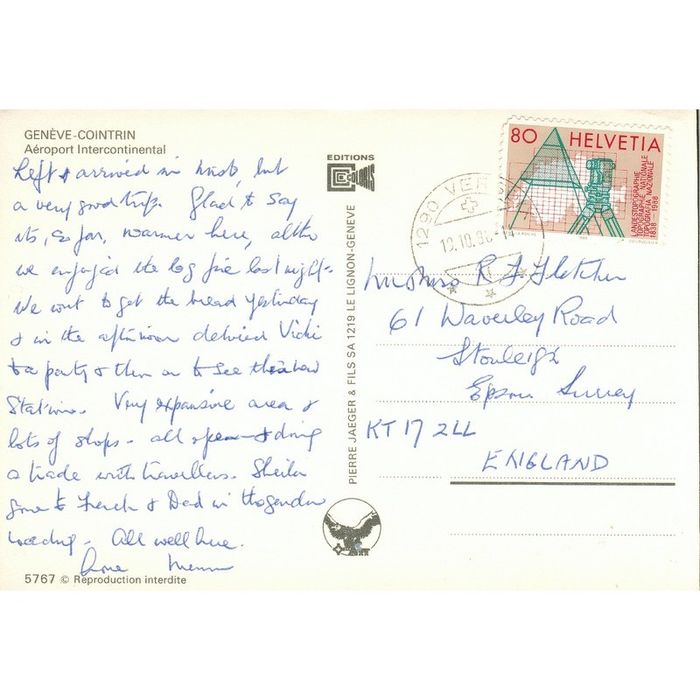 GENÈVE-COINTRIN
Aéroport Intercontinental
Left & arrived in mist, but
a very good trip. Glad to say
its, so far, warmer here, altho
we enjoyed the log fire last night.
We went to get the bread yesterday
& in the afternoon delivered Vicki
to a party & then on to see the
Station. Very expansive area &
lots of shops - all open & doing
a trade with travellers. Sheila
gone to French & Dad in the garden
reading. All well here.
Love Mum
5767 © Reproduction interdite
EDITIONS
PIERRE JAEGER & FILS SA 1219 LE LIGNON-GENEVE
1290 VERSOIX
10.10.88-14
80 HELVETIA
LANDESTOPOGRAPHIE
TOPOGRAPHIE NATIONALE
TOPOGRAFIA NAZIONALE
1838 1988
R J Fletcher
61 Waverley Road
Stoneleigh
Epsom Surrey
KT17 2LL
ENGLAND